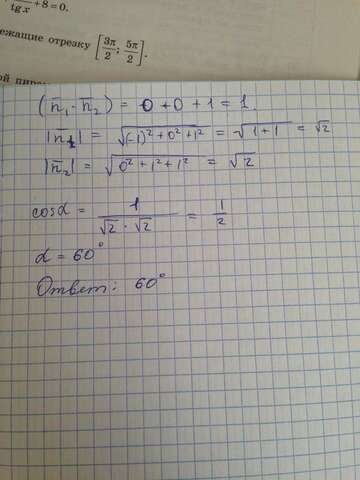 tg x + 8 = 0.
ежащие отрезку [3π/2; 5π/2].
ой пирам
(n̅₁ · n̅₂) = 0 + 0 + 1 = 1.
|n̅₁| = √((-1)² + 0² + 1²) = √(1 + 1) = √2
|n̅₂| = √(0² + 1² + 1²) = √2
cosα = 1/(√2 · √2) = 1/2
α = 60°
Ответ: 60°